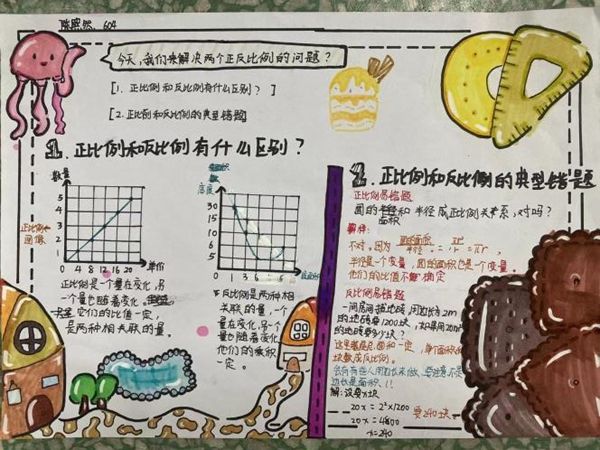 陈熙然，604
今天，我们来解决两个正反比例的问题？
[1. 正比例和反比例有什么区别？]
[2. 正比例和反比例的典型错题]
1. 正比例和反比例有什么区别？
数量
5
4
3
2
1
0 4 8 12 16 20 单价
正比例
图像
正比例是一个量在变化，另
一个量也随着变化，
它们的比值一定，
是两种相关联的量。
高度
30
15
10
5
0 1 2 3
反比例是两种相
关联的量，一个
量在变化，另一个
量也随着变化
他们的乘积
一定。
2. 正比例和反比例的典型错题
正比例易错题
圆的面积和半径成正比例关系，对吗？
解释：
不对，因为
半径是一个变量，圆的面积也是一个变量。
他们的比值不确定
反比例易错题
一间房间铺地砖，用边长2m
的地砖要1200块，如果用20m²
的地砖要多少块？
这里总面积一定，单个面积和
块数成反比例。
会有些人用边长来做，要注意不是
边长是面积！！
解：设要x块
20x = 2²×1200
20x = 4800
x=240
要240块